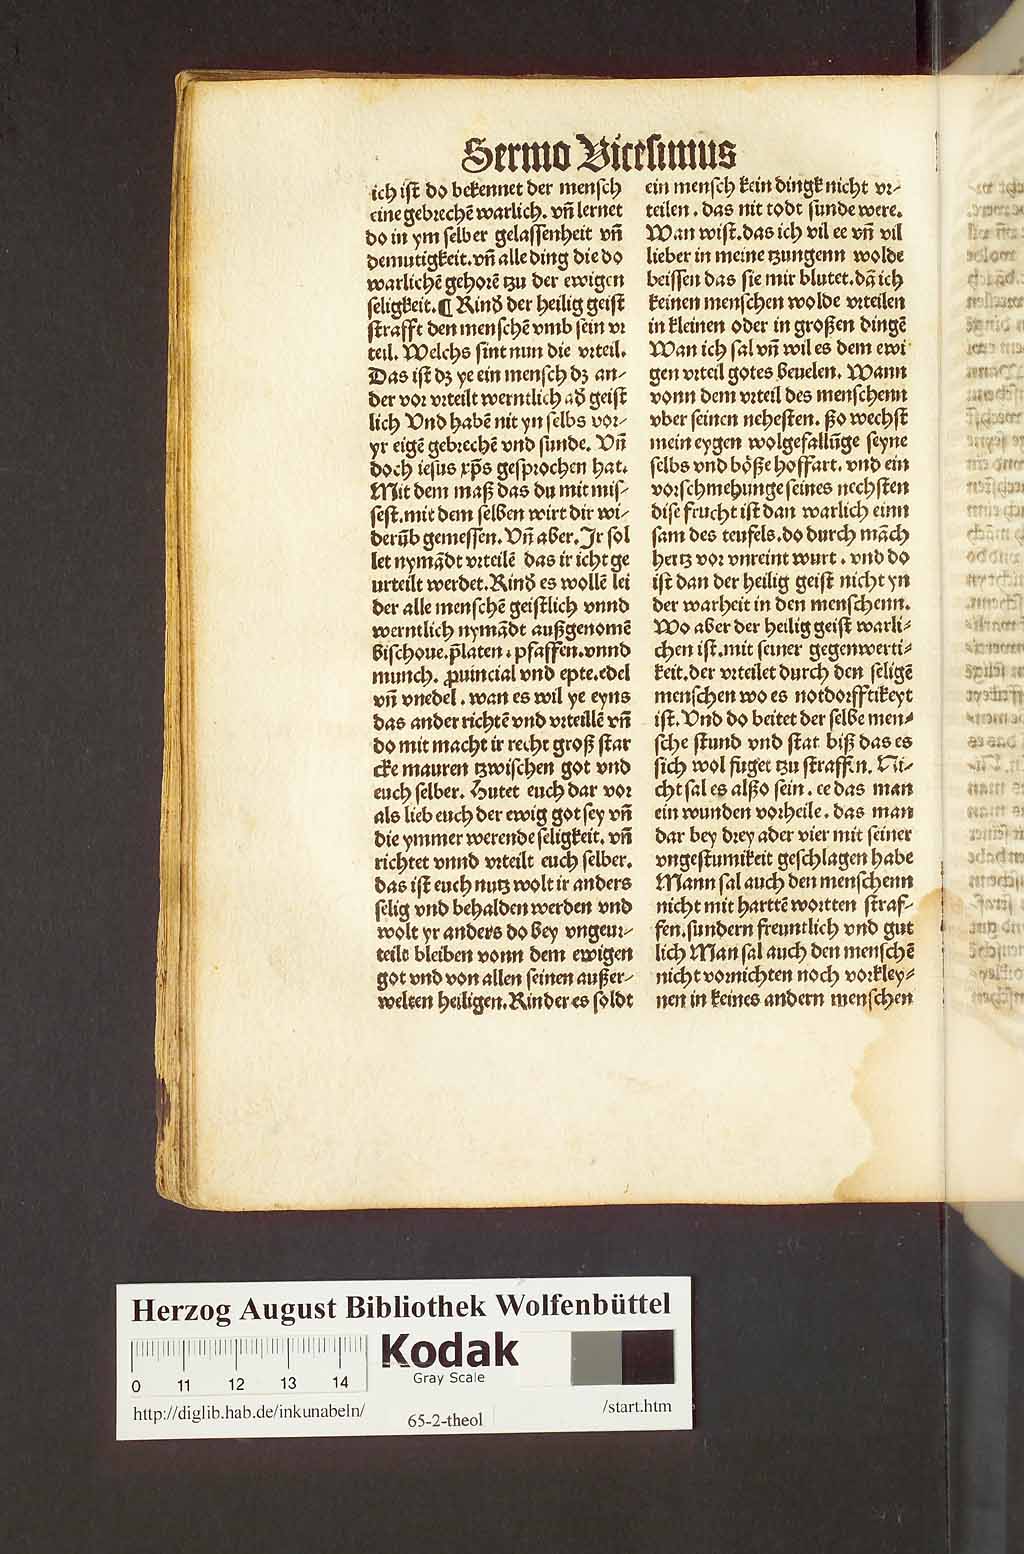 Sermo Vicesimus
ich ist do bekennet der mensch
eine gebrechē warlich. vn̄ lernet
do in ym selber gelassenheit vn̄
demutigkeit. vn̄ alle ding die do
warlichē gehorē tzu der ewigen
seligkeit. ¶ Kind der heilig geist
strafft den menschē vmb sein vr
teil. Welchs sint nun die vrteil.
Das ist dz ye ein mensch dz an⸗
der vor vrteilt werntlich ad geist
lich Vnd habē nit yn selbs vor⸗
yr eigē gebrechē vnd sunde. Vn̄
doch iesus xp̄s gesprochen hat.
Mit dem maß das du mit mis⸗
sest. mit dem selben wirt dir wi⸗
derūb gemessen. Vn̄ aber. Ir sol
let nymādt vrteilē das ir icht ge
urteilt werdet. Kind es wollē lei
der alle menschē geistlich vnnd
werntlich nymādt außgenomē
bischoue. p̄laten. pfaffen. vnnd
munch. ꝓuincial vnd epte. edel
vn̄ vnedel. wan es wil ye eyns
das ander richtē vnd vrteillē vn̄
do mit macht ir recht groß star
cke mauren tzwischen got vnd
euch selber. Hutet euch dar vor
als lieb euch der ewig got sey vn̄
die ymmer werende seligkeit. vn̄
richtet vnnd vrteilt euch selber.
das ist euch nutz wolt ir anders
selig vnd behalden werden vnd
wolt yr anders do bey vngeur⸗
teilt bleiben vonn dem ewigen
got vnd von allen seinen außer⸗
welten heiligen. Kinder es soldt
ein mensch kein dingk nicht vr⸗
teilen. das nit todt sunde were.
Wan wist. das ich vil ee vn̄ vil
lieber in meine tzungenn wolde
beissen das sie mir blutet. dā ich
keinen menschen wolde vrteilen
in kleinen oder in großen dingē
Wan ich sal vn̄ wil es dem ewi
gen vrteil gotes beuelen. Wann
vonn dem vrteil des menschenn
vber seinen nehesten. ßo wechst
mein eygen wolgefallūge seyne
selbs vnd böße hoffart. vnd ein
vorschmehunge seines nechsten
dise frucht ist dan warlich einn
sam des teufels. do durch māch
hertz vor vnreint wurt. vnd do
ist dan der heilig geist nicht yn
der warheit in den menschenn.
Wo aber der heilig geist warli⸗
chen ist. mit seiner gegenwerti⸗
keit. der vrteilet durch den seligē
menschen wo es notdorfftikeyt
ist. Vnd do beitet der selbe men⸗
sche stund vnd stat biß das es
sich wol fuget tzu straffen. Ni⸗
cht sal es alßo sein. ee das man
ein wunden vorheile. das man
dar bey drey ader vier mit seiner
vngestumikeit geschlagen habe
Mann sal auch den menschenn
nicht mit harttē wortten straf⸗
fen. sundern freuntlich vnd gut
lich Man sal auch den menschē
nicht vornichten noch vorkley⸗
nen in keines andern menschen
Herzog August Bibliothek Wolfenbüttel
Kodak
Gray Scale
0 11 12 13 14
http://diglib.hab.de/inkunabeln/
65-2-theol
/start.htm